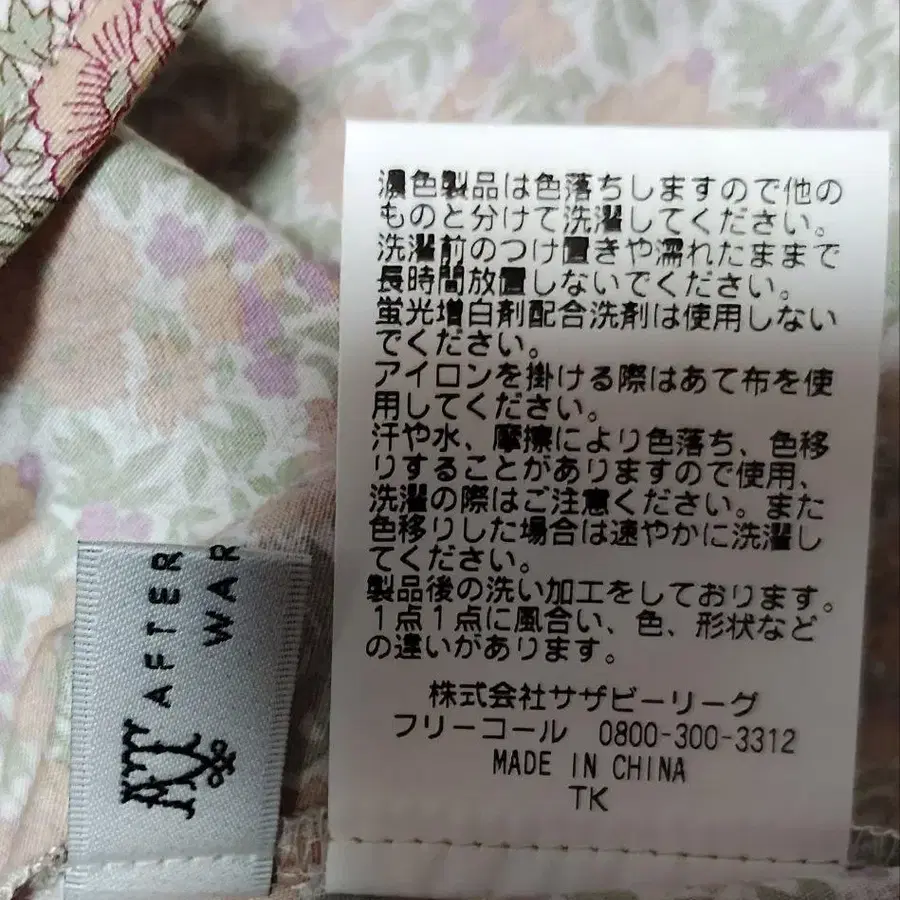 濃色製品は色落ちしますので他の
ものと分けて洗濯してください。
洗濯前のつけ置きや濡れたままで
長時間放置しないでください。
蛍光増白剤配合洗剤は使用しない
でください。
アイロンを掛ける際はあて布を使
用してください。
汗や水、摩擦により色落ち、色移
りすることがありますので使用、
洗濯の際はご注意ください。また
色移りした場合は速やかに洗濯し
てください。
製品後の洗い加工をしております。
1点1点に風合い、色、形状など
の違いがあります。
株式会社サザビーリーグ
フリーコール 0800-300-3312
MADE IN CHINA
TK
AFTER
WAR